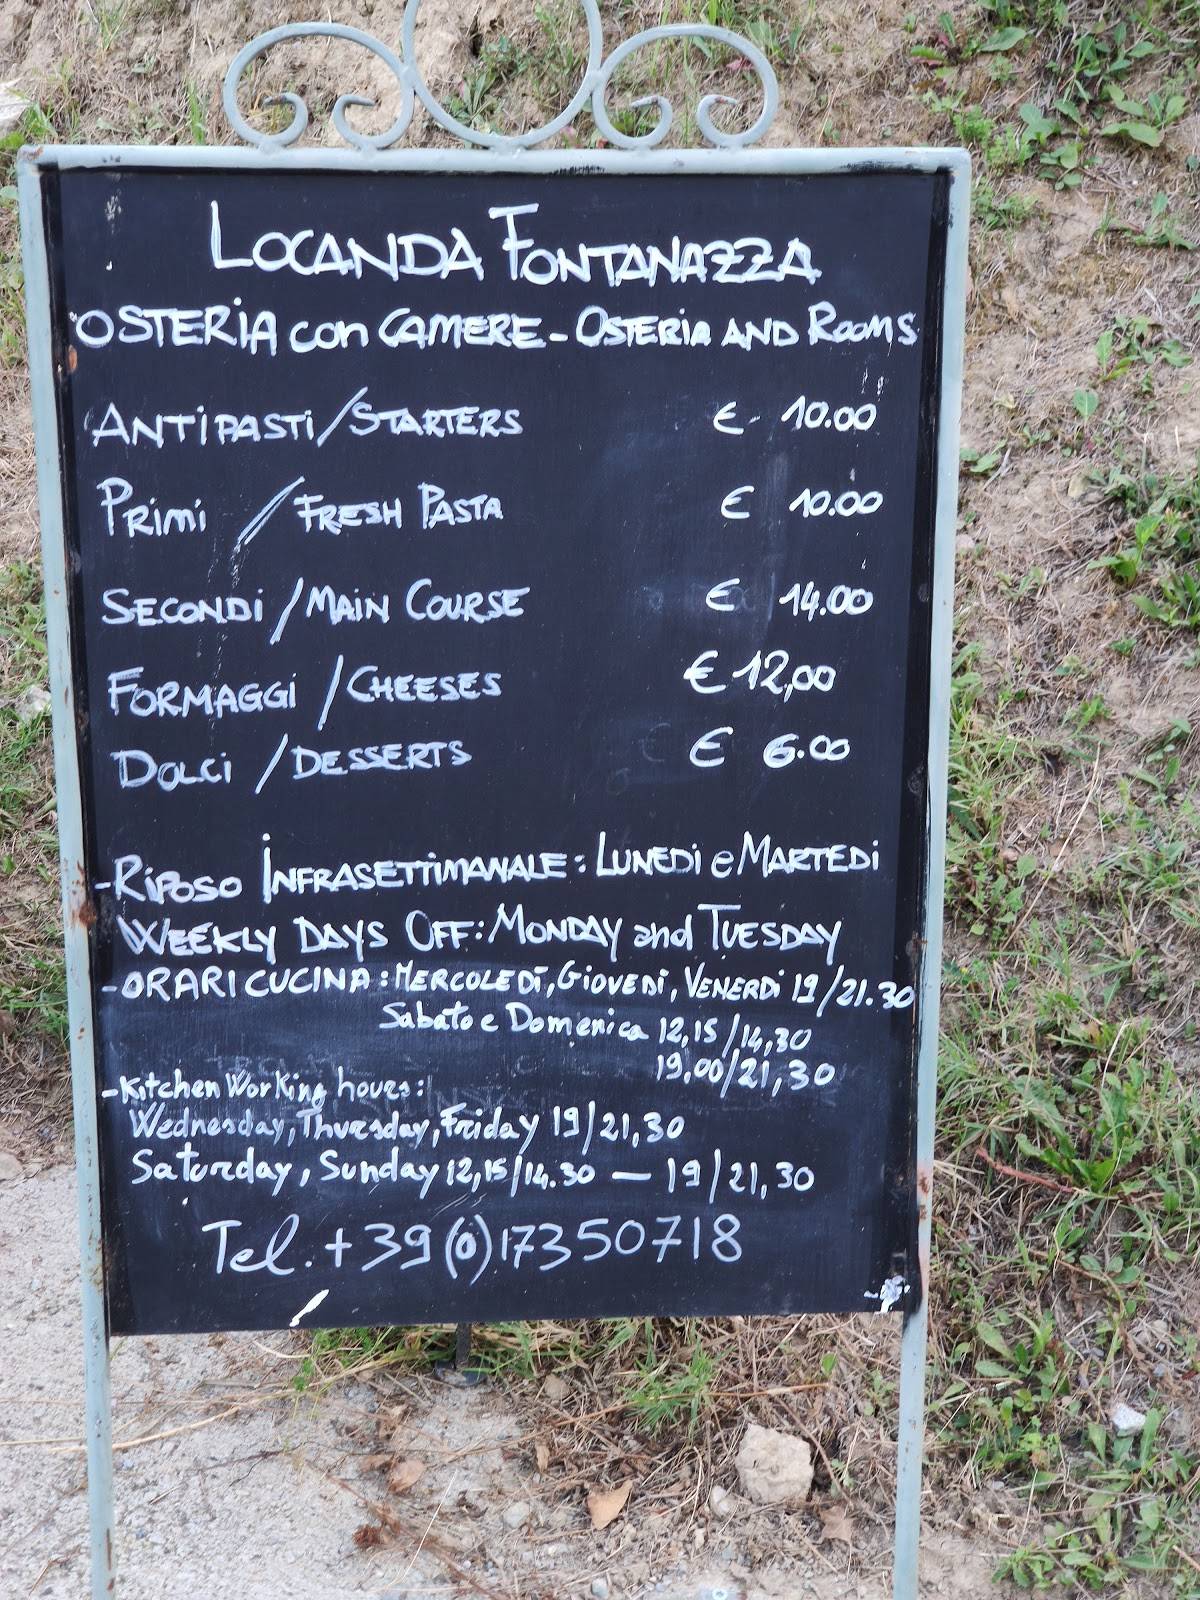 LOCANDA FONTANAZZA
OSTERIA con CAMERE - OSTERIA AND ROOMS
ANTIPASTI/STARTERS € 10.00
PRIMI / FRESH PASTA € 10.00
SECONDI / MAIN COURSE € 14.00
FORMAGGI / CHEESES € 12,00
DOLCI / DESSERTS € 6.00
- RIPOSO INFRASETTIMANALE: LUNEDI e MARTEDI
WEEKLY DAYS OFF: MONDAY and TUESDAY
- ORARI CUCINA: MERCOLEDI, GIOVEDI, VENERDI 19/21.30
Sabato e Domenica 12,15/14,30
19,00/21,30
- Kitchen Working hours:
Wednesday, Thursday, Friday 19/21,30
Saturday, Sunday 12,15/14.30 — 19/21,30
Tel. +39(0)17350718